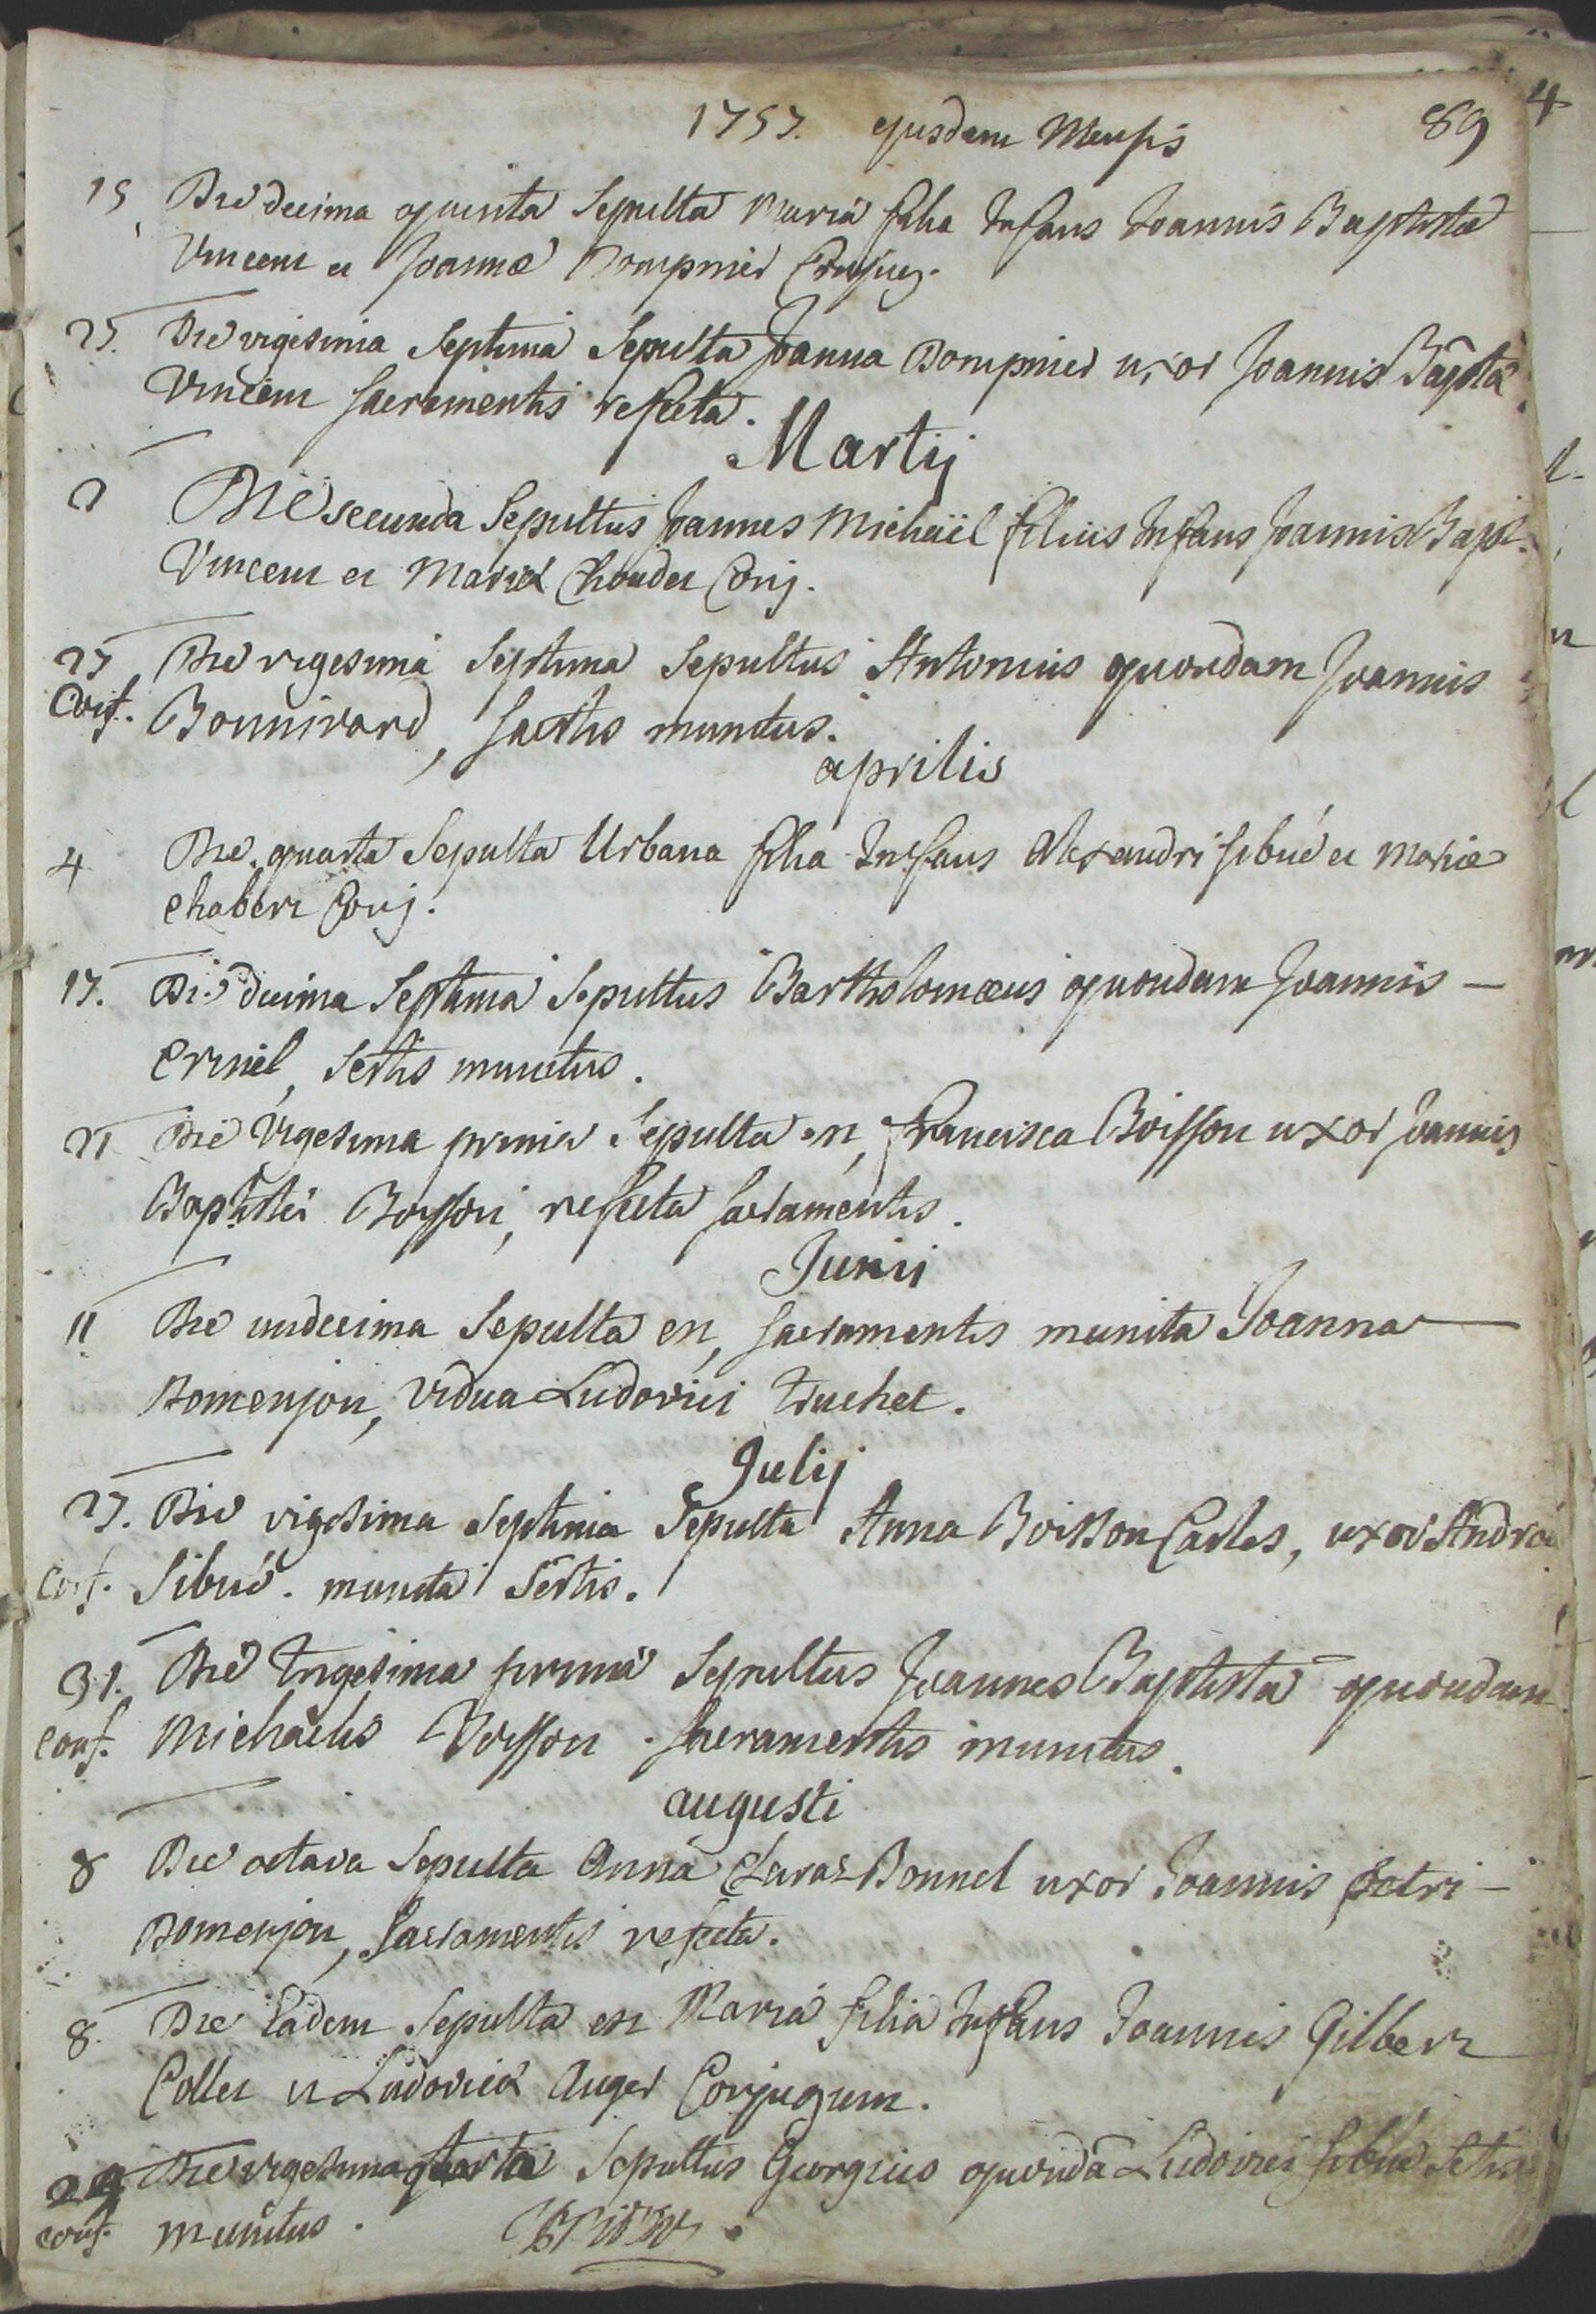 1757. ejusdem Mensis 89 4
15 Die decima quinta Sepulta Maria filia Infans Joannis Baptistæ
Vincent et Joannæ Dompnier Conjug.
27. Die vigesima Septima Sepulta Joanna Dompnier uxor Joannis Bapta
Vincent sacramentis refecta.
Martij
2 Die secunda Sepultus Joannes Michaël filius Infans Joannis Bapt.
Vincent et Mariæ Choudet Conj.
27 Die vigesima Septima Sepultus Antonius quondam Joannis
Conf. Bonnivard, sactis munitus.
aprilis
4 Die quarta Sepulta Urbana filia Infans Alexandri Sibué et Mariæ
Chabert Conj.
17. Die decima Septima Sepultus Bartholomæus quondam Joannis –
Crinel, Sctis munitus.
21 Die Vigesima prima Sepulta est, Francisca Boisson uxor Joannis
Baptistæ Boisson, refecta sacramentis.
Junii
11 Die undecima Sepulta est, sacramentis munita Joanna
Domenjon, vidua Ludovici Truchet.
Julij
27. Die vigesima Septima Sepulta Anna Boisson Carles, uxor Andreæ
conf. Sibué. munita Sctis.
31. Die Trigesima prima Sepultus Joannes Baptista quondam
conf. Michaelis Boisson. Sacramentis munitus.
augusti
8 Die octava Sepulta Anna Claraz Bonnel uxor Joannis Petri –
Domenjon, Sacramentis refecta.
8. Die Eadem Sepulta est Maria filia Infans Joannis Gilbert
Collet et Ludovicæ Auger Conjugum.
24 Die vigesima quarta Sepultus Georgius quondã Ludovici Sibué Sctis
conf. munitus.